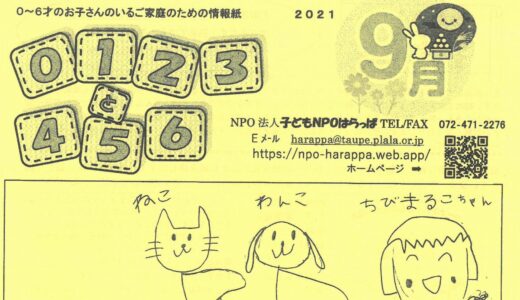 0～6才のお子さんのいるご家庭のための情報紙
2021
9月
0123
と
456
NPO法人子どもNPOはらっぱ TEL/FAX 072-471-2276
Eメール harappa@taupe.plala.or.jp
https://npo-harappa.web.app/
ホームページ ➡
ねこ
わんこ
ちびまるこちゃん